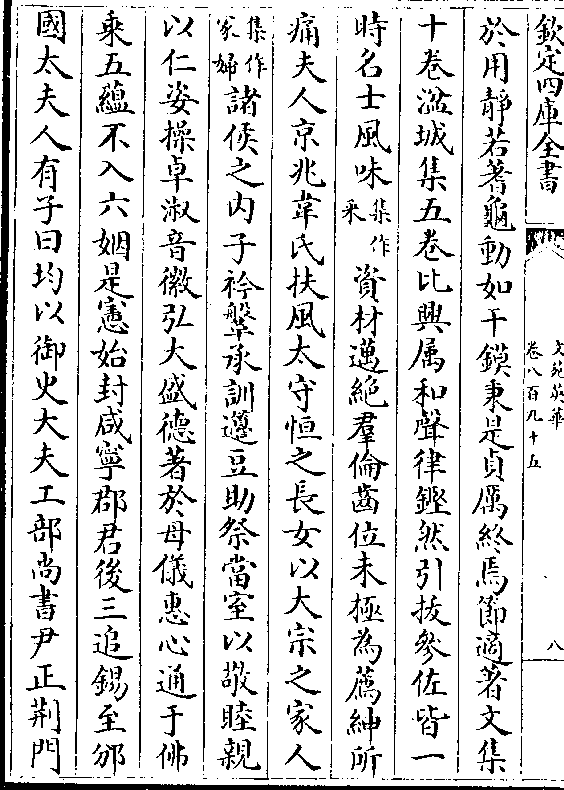 欽定四庫全書
文苑英華
卷八百九十五
八
於用靜若蓍龜動如干鏌秉是貞厲終焉節適著文集
十卷湓城集五卷比興屬和聲律鏗然引拔參佐皆一
時名士風味集作采資材邁絶羣倫齒位未極為薦紳所
痛夫人京兆韋氏扶風太守恒之長女以大宗之家人
集作家婦諸侯之内子衿鞶承訓籩豆助祭當室以敬睦親
以仁姿操卓淑音徽弘大盛德著於母儀惠心通于佛
乘五蘊不入六姻是憲始封咸寧郡君後三追錫至邠
國太夫人有子曰均以御史大夫工部尚書尹正荆門